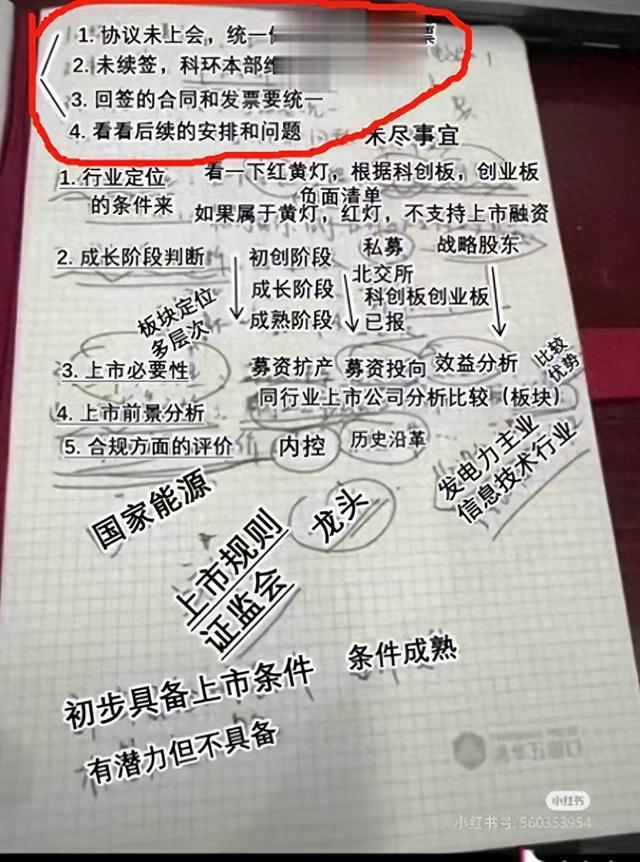 1. 协议未上会，统一
2. 未续签，科环本部
3. 回签的合同和发票要统一
4. 看看后续的安排和问题
未尽事宜
1. 行业定位的条件来
看一下红黄灯，根据科创板，创业板
负面清单
如果属于黄灯，红灯，不支持上市融资
2. 成长阶段判断
初创阶段
成长阶段
成熟阶段
私募
北交所
科创板创业板
已报
战略股东
板块定位
多层次
3. 上市必要性
募资扩产 募资投向 效益分析
比较
优势
4. 上市前景分析
同行业上市公司分析比较（板块）
5. 合规方面的评价
内控
历史沿革
发电力主业
信息技术行业
国家能源
龙头
上市规则
证监会
初步具备上市条件
条件成熟
有潜力但不具备
小红书
小红书号: 560353954